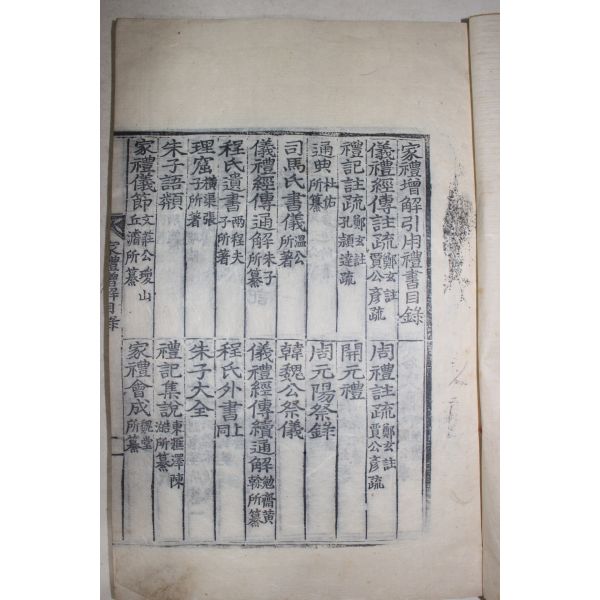 家禮增解引用禮書目錄
儀禮經傳註疏 鄭玄註 賈公彦疏
周禮註疏 鄭玄註 賈公彦疏
禮記註疏 鄭玄註 孔穎達疏
開元禮
通典 杜佑所纂
周元陽祭錄
司馬氏書儀 溫公所著
韓魏公祭儀
儀禮經傳通解 朱子所纂
儀禮經傳續通解 勉齋黃榦所纂
程氏遺書 兩程夫子所著
程氏外書 上同
理窟 橫渠張子所著
朱子大全
朱子語類
禮記集說 東匯澤陳澔所纂
家禮儀節 文莊公瓊山丘濬所纂
家禮會成 魏堂所纂
家禮增解目錄
一